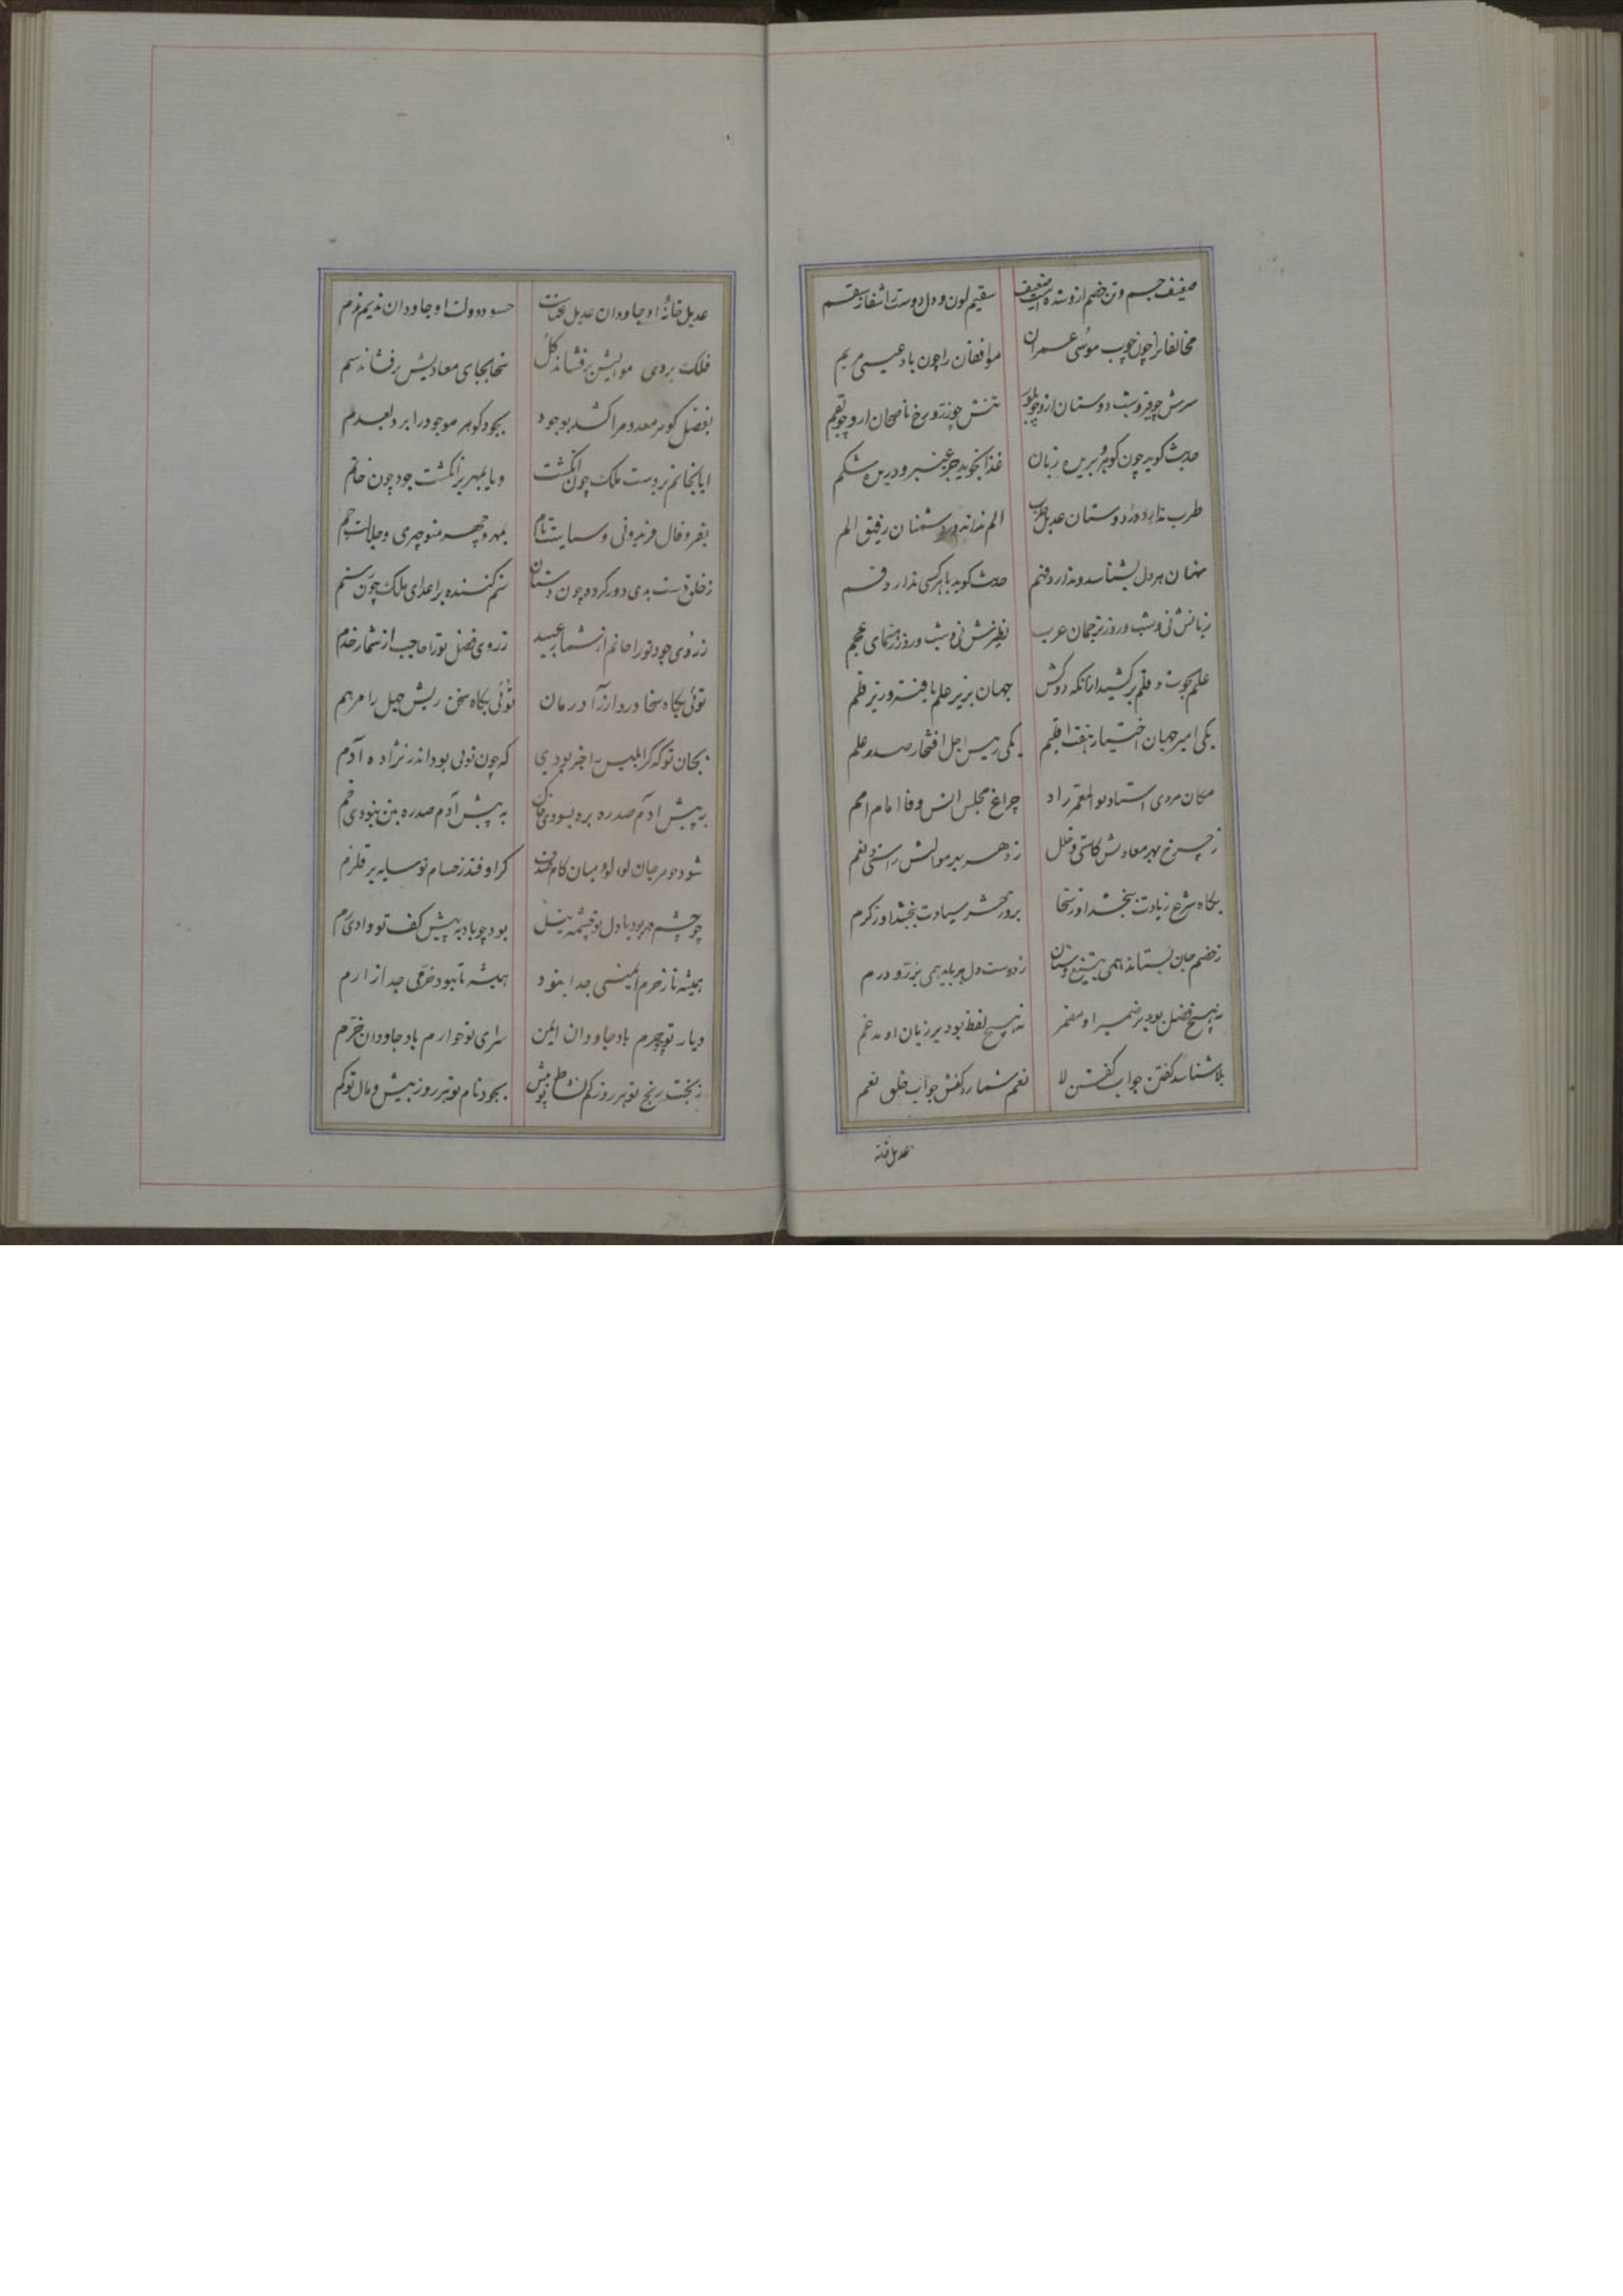 ضعیف جسم و تن خصم ازو شده است ضعیف سقیم لون و دل دوست را شفا ز سقم
مخالفانرا چون چوب موسی عمران موافقان را چون باد عیسی مریم
سرش چو قیر و شب دوستان ازو چو بلور تنش چو زر و رخ ناصحان ازو چو بقم
حدیث گوید چون گوهر و بریده زبان غذا نجوید جز عنبر و دریده شکم
طرب ندارد و زو دوستان عدیل طرب الم نداند و زو دشمنان رفیق الم
نهان هر دل بشناسد و ندارد فهم حدیث گوید با هر کسی ندارد فم
زبانش نی و شب و روز ترجمان عرب نظرش نی و شب و روز رهنمای عجم
علم بجوت و قلم برکشید ازانکه دو کش جهان بزیر علم یافتند و زیر قلم
یکی امیر جهان اختیار هفت اقلیم یکی رئیس اجل افتخار صدر علم
مکان مردی استاد بوالمعمر راد چراغ مجلس انس و فا امام امم
ز چرخ بهر معادیش کاستی و خلل ز دهر بهر موالیش راستی و نعم
بگاه شرع زیادت ببخشد او ز سخا بروز حشر سیادت ببخشد او ز کرم
ز خصم جان بستاند همی بتیغ و سنان ز دوست دل برباید همی بزر و درم
نه هیچ فضل بود بر ضمیر او مضمر نه هیچ لفظ بود بر زبان او مدغم
بلا شناسد گفتن جواب گفتن لا نعم شمارد گفتن جواب خلق نعم
عدیل خانه
عدیل خانهٔ او جاودان عدیل عنات حسود دولت او جاودان ندیم ندم
فلک بروی موالیش برفشاند گل سخا بجای معادیش برفشاند سم
بفضل گوهر معدوم را کشد بوجود بجود گوهر موجود را برد بعدم
ایا بخاتم بر دست ملک چون انگشت و یا بمهر بر انگشت جود چون خاتم
بفر و فال فریدونی و سیاست سام بمهر و چهر منوچهری و جلالت جم
ز خلق دست بدی دور کرده چون دستان ستم کننده بر اعدای ملک چون رستم
ز روی جود تو را حاتم از شمار عبید ز روی فضل تو را صاحب از شمار خدم
توئی بگاه سخا درد آز را درمان توئی بگاه سخن ریش جهل را مرهم
بجان تو که گر ابلیس را خبر بودی که چون توئی بود اندر نژاده آدم
به پیش آدم صد ره بره بسودی خاک به پیش آدم صد ره بتن نمودی خم
شود چو مرجان لولو میان کام صدف گر اوفتد ز حسام تو سایه بر قلزم
چو چشم مور بود با دل تو چشمه نیل بود چو بادیه پیش کف تو وادی یم
همیشه تا ز حرم ایمنی جدا نبود همیشه تا نبود خرمی جدا ز ارم
دیار تو چو حرم باد جاودان ایمن سرای تو چو ارم باد جاودان خرم
ز بخت رنج تو هر روز کم نشاط تو بیش بجود نام تو هر روز بیش و مال تو کم